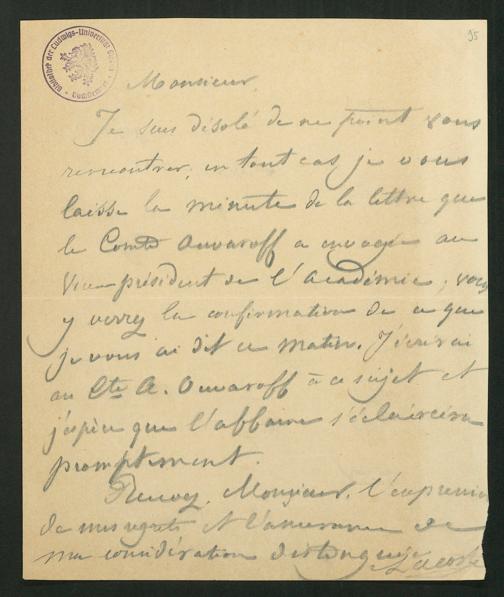 95
Bibliothek der Ludwigs-Universität
Monsieur,
Je suis désolé de ne point vous
rencontrer, en tout cas je vous
laisse la minute de la lettre que
le Comte Ouvaroff a envoyée au
Vice-président de l'Académie, vous
y verrez la confirmation de ce que
je vous ai dit ce matin. J'écrirai
au Cte A. Ouvaroff à ce sujet et
j'espère que l'affaire s'éclaircira
promptement.
Recevez, Monsieur, l'expression
de mes regrets et l'assurance de
ma considération distinguée